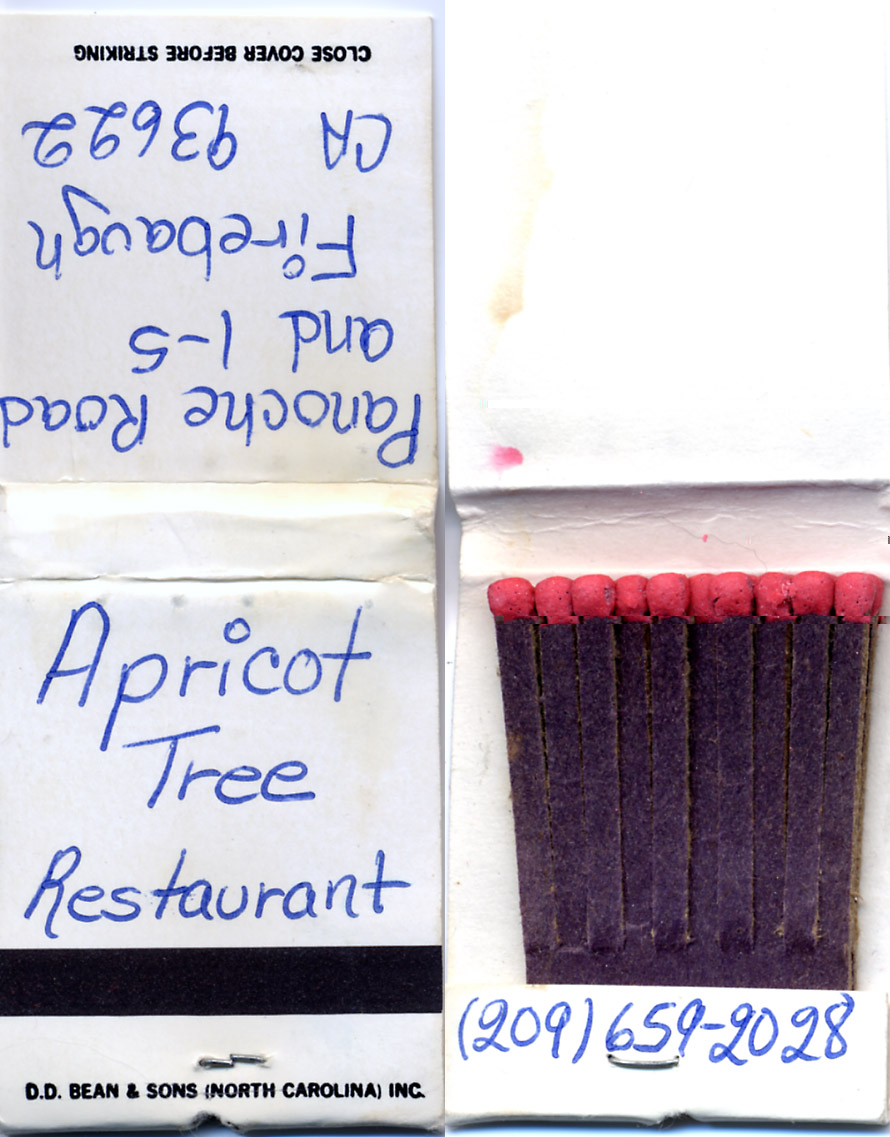 CLOSE COVER BEFORE STRIKING
Panoche Road
and I-5
Firebaugh
CA 93622
Apricot
Tree
Restaurant
D.D. BEAN & SONS (NORTH CAROLINA) INC.
(209) 659-2028